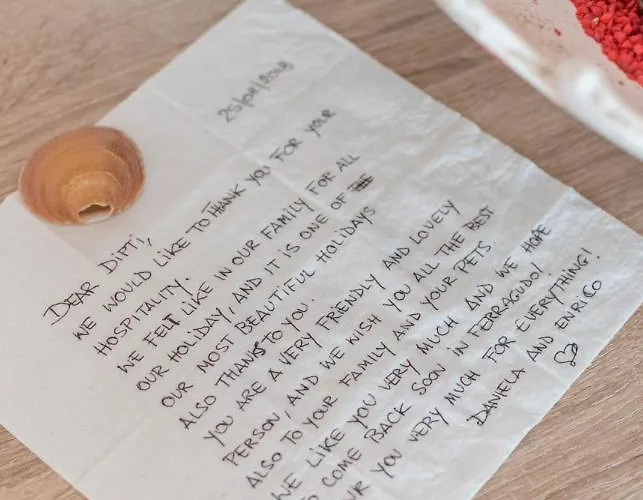 25/08/2018
DEAR DIPTI,
WE WOULD LIKE TO THANK YOU FOR YOUR
HOSPITALITY.
WE FELT LIKE IN OUR FAMILY FOR ALL
OUR HOLIDAY, AND IT IS ONE OF
OUR MOST BEAUTIFUL HOLIDAYS
ALSO THANKS TO YOU.
YOU ARE A VERY FRIENDLY AND LOVELY
PERSON, AND WE WISH YOU ALL THE BEST
ALSO TO YOUR FAMILY AND YOUR PETS
WE LIKE YOU VERY MUCH AND WE HOPE
TO COME BACK SOON IN FERRAGUDO!
YOU VERY MUCH FOR EVERYTHING!
DANIELA AND ENRICO